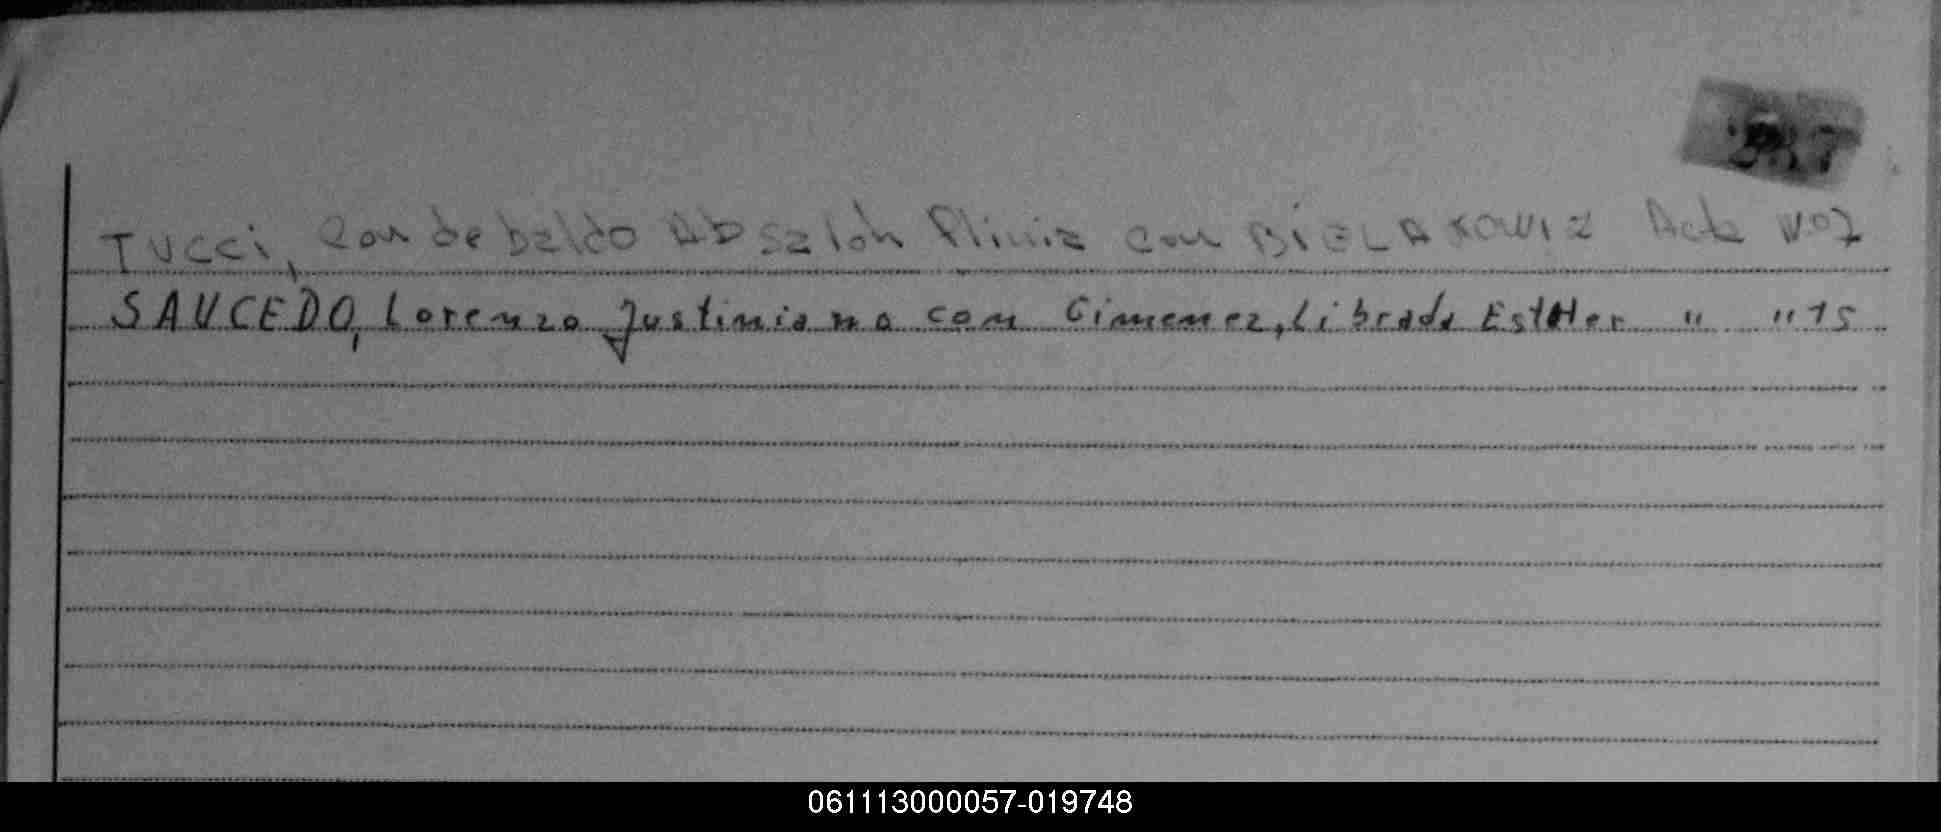 TUCCI, Gondebaldo ABsalón Plinio con BIELAKOWIZ Acta Nº 7
SAUCEDO, Lorenzo Justiniano con Gimenez, Librada EstHer " " 15
061113000057-019748